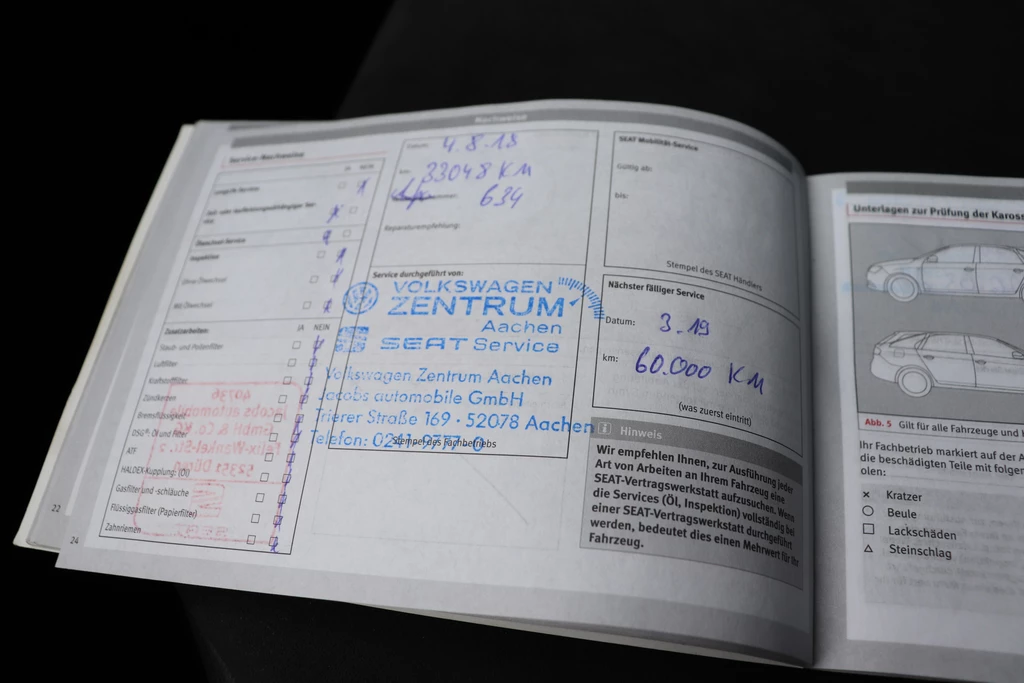 Nachweise
Service-Nachweise
JA NEIN
LongLife Service
Zeit- oder laufleistungsabhängiger Ser-
vice
Ölwechsel-Service
Inspektion
Ohne Ölwechsel
Mit Ölwechsel
Zusatzarbeiten: JA NEIN
Staub- und Pollenfilter
Luftfilter
Kraftstofffilter
Zündkerzen
Bremsflüssigkeit
DSG®: Öl und Filter
ATF
HALDEX-Kupplung: (Öl)
Gasfilter und -schläuche
Flüssiggasfilter (Papierfilter)
Zahnriemen
22
24
Datum: 4.8.18
km: 33048 KM
634
Reparaturempfehlung:
Service durchgeführt von:
VOLKSWAGEN
ZENTRUM
Aachen
SEAT Service
Volkswagen Zentrum Aachen
Jacobs automobile GmbH
Trierer Straße 169 · 52078 Aachen
Telefon:
Stempel des Fachbetriebs
SEAT Mobilität-Service
Gültig ab:
bis:
Stempel des SEAT Händlers
Nächster fälliger Service
Datum: 3.19
km: 60.000 KM
(was zuerst eintritt)
i Hinweis
Wir empfehlen Ihnen, zur Ausführung jeder
Art von Arbeiten an Ihrem Fahrzeug eine
SEAT-Vertragswerkstatt aufzusuchen. Wenn
die Services (Öl, Inspektion) vollständig bei
einer SEAT-Vertragswerkstatt durchgeführt
werden, bedeutet dies einen Mehrwert für Ihr
Fahrzeug.
Unterlagen zur Prüfung der Kaross
Abb. 5 Gilt für alle Fahrzeuge und
Ihr Fachbetrieb markiert auf der A
die beschädigten Teile mit folgen
olen:
× Kratzer
○ Beule
□ Lackschäden
△ Steinschlag